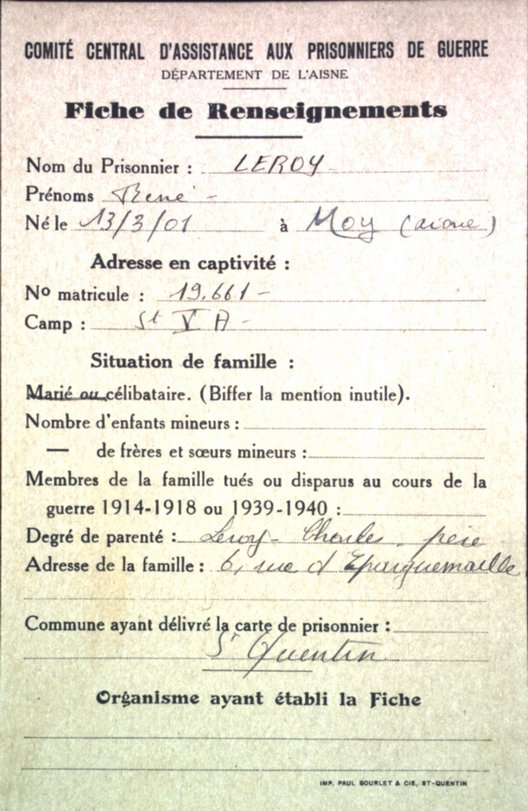 COMITÉ CENTRAL D'ASSISTANCE AUX PRISONNIERS DE GUERRE
DÉPARTEMENT DE L'AISNE
Fiche de Renseignements
Nom du Prisonnier : LEROY
Prénoms René
Né le 13/3/01 à Moy (aisne)
Adresse en captivité :
No matricule : 19.661
Camp : St V A
Situation de famille :
Marié ou célibataire. (Biffer la mention inutile).
Nombre d'enfants mineurs :
— de frères et sœurs mineurs :
Membres de la famille tués ou disparus au cours de la
guerre 1914-1918 ou 1939-1940 :
Degré de parenté : Leroy Charles père
Adresse de la famille : 6, rue d'Eparguemaille
Commune ayant délivré la carte de prisonnier :
St Quentin
Organisme ayant établi la Fiche
IMP. PAUL BOURLET & CIE, ST-QUENTIN